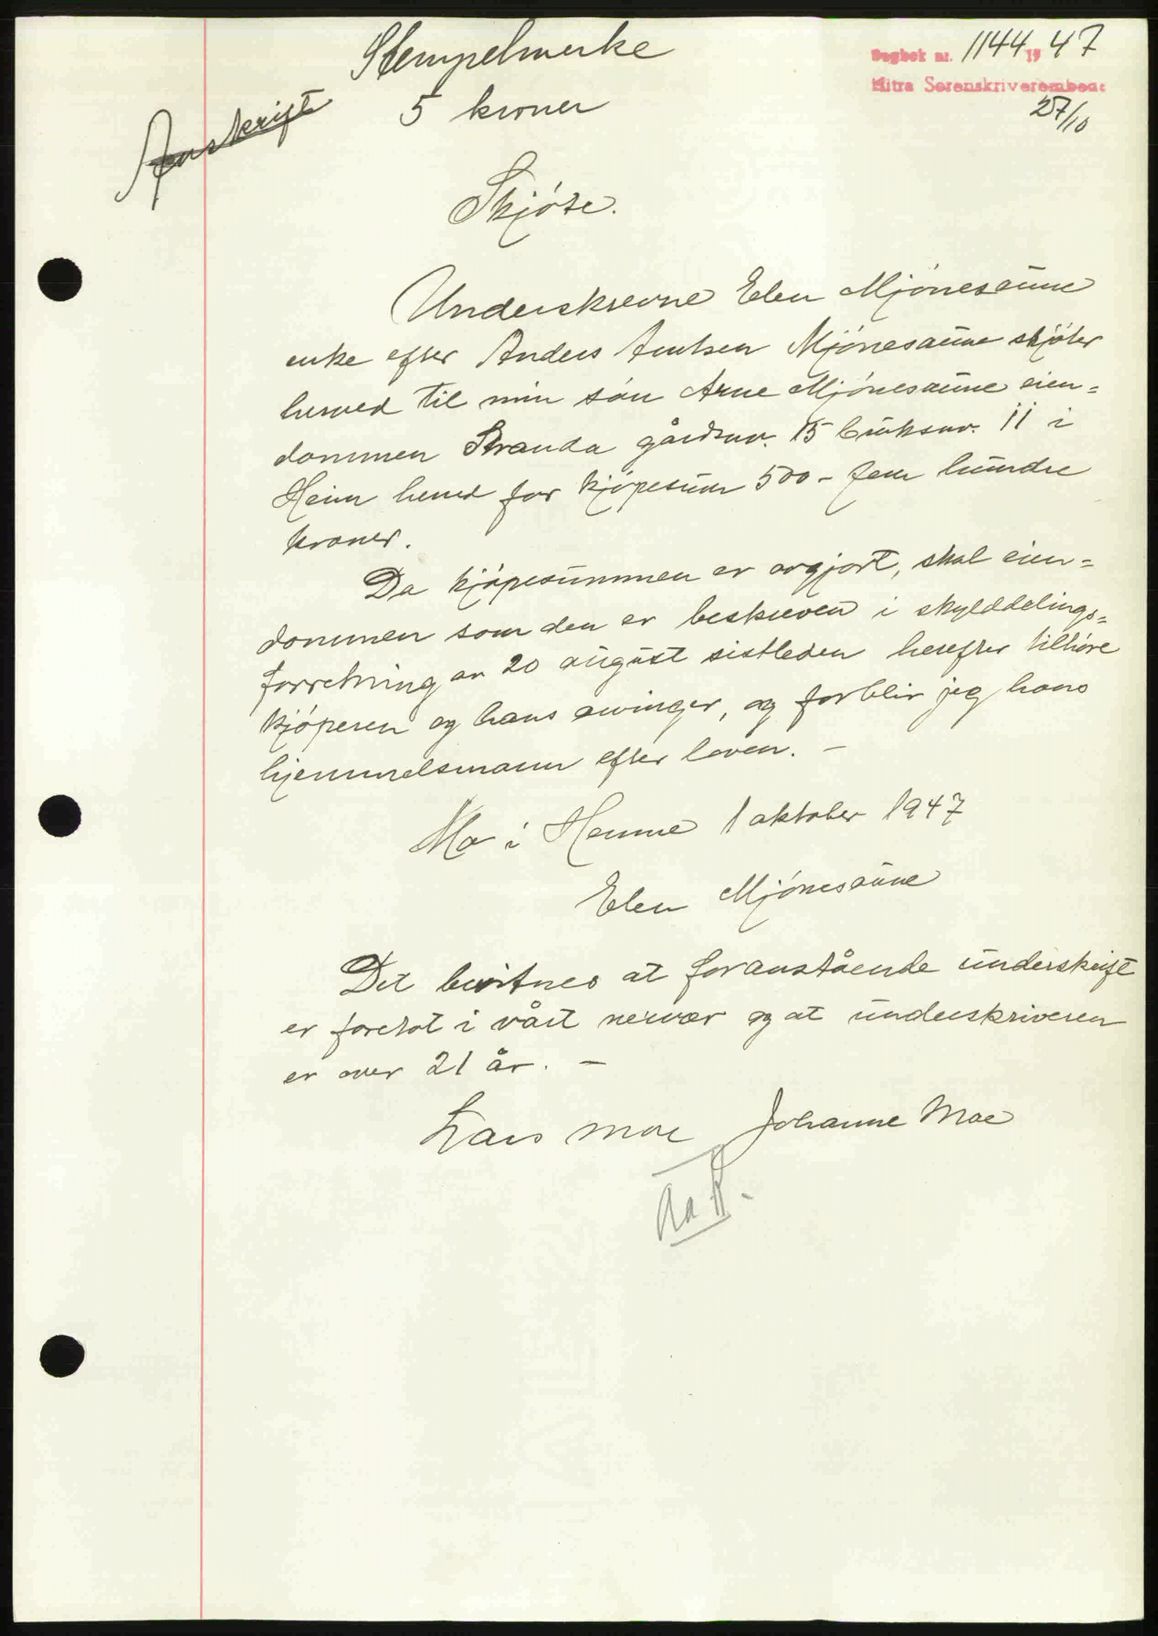 Stempelmerke
5 kroner
Avskrift
Dagbok nr. 1144 1947
Hitra Sorenskriverembede
27/10
Skjöte.
Underskrevne Elen Mjönesaune
enke efter Anders Arntsen Mjönesaune skjöter
herved til min sön Arne Mjönesaune eien=
dommen Stranda gårdsnr. 15 bruksnr. 11 i
Heim herred for kjöpesum 500- fem hundre
kroner.
Da kjöpesummen er avgjort, skal eien=
dommen som den er beskreven i skylddelings=
forretning av 20 august sistleden herefter tilhöre
kjöperen og hans arvinger, og forblir jeg hans
hjemmelsmann efter loven. -
Mo i Hemne 1 oktober 1947
Elen Mjönesaune
Det bevitnes at foranstående underskrift
er foretat i vårt nervær og at underskriveren
er over 21 år. -
Lars Moe Johanne Moe